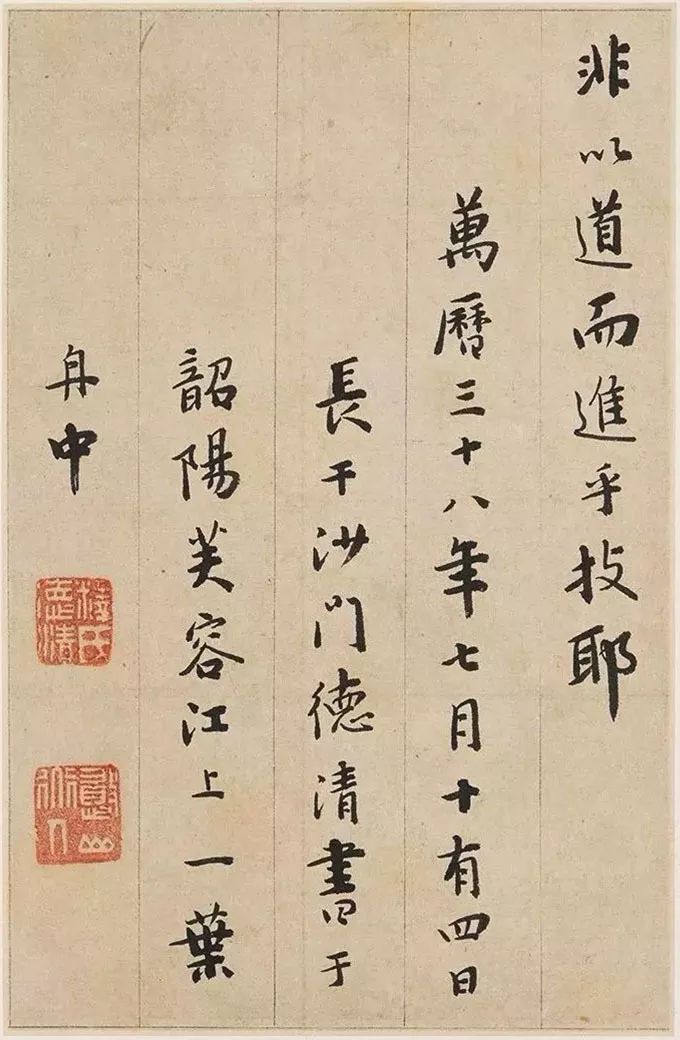 非以道而進乎技耶
萬曆三十八年七月十有四日
長干沙門德清書于
韶陽芙容江上一葉
舟中
釋氏
悳清
憨山